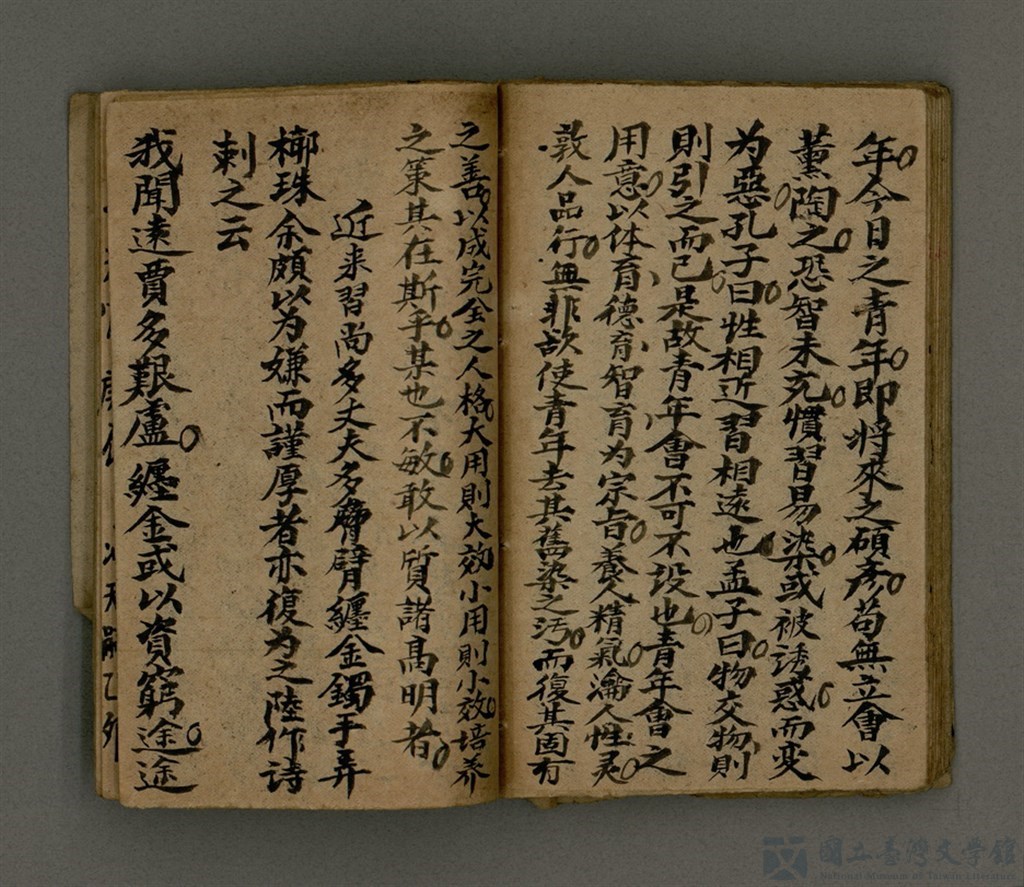 年今日之青年即將來之碩彥苟無立會以
薰陶之恐智未充慣習易染或被誘惑而变
为惡孔子曰性相近習相遠也孟子曰物交物則
則引之而已是故青年會不可不設也青年會之
用意以体育德育智育为宗旨養人精氣瀹人性灵
敦人品行無非欲使青年去其舊染之汚而復其固有
之善以成完全之人格大用則大效小用則小效培养
之策其在斯乎某也不敏敢以質諸高明者
近来習尚多丈夫多脅臂纏金鐲手弄
梛珠余頗以为嫌而謹厚者亦復为之陸作詩
刺之云
我聞遠賈多艱廬纏金或以資窮途途
國立臺灣文學館
National Museum of Taiwan Literature